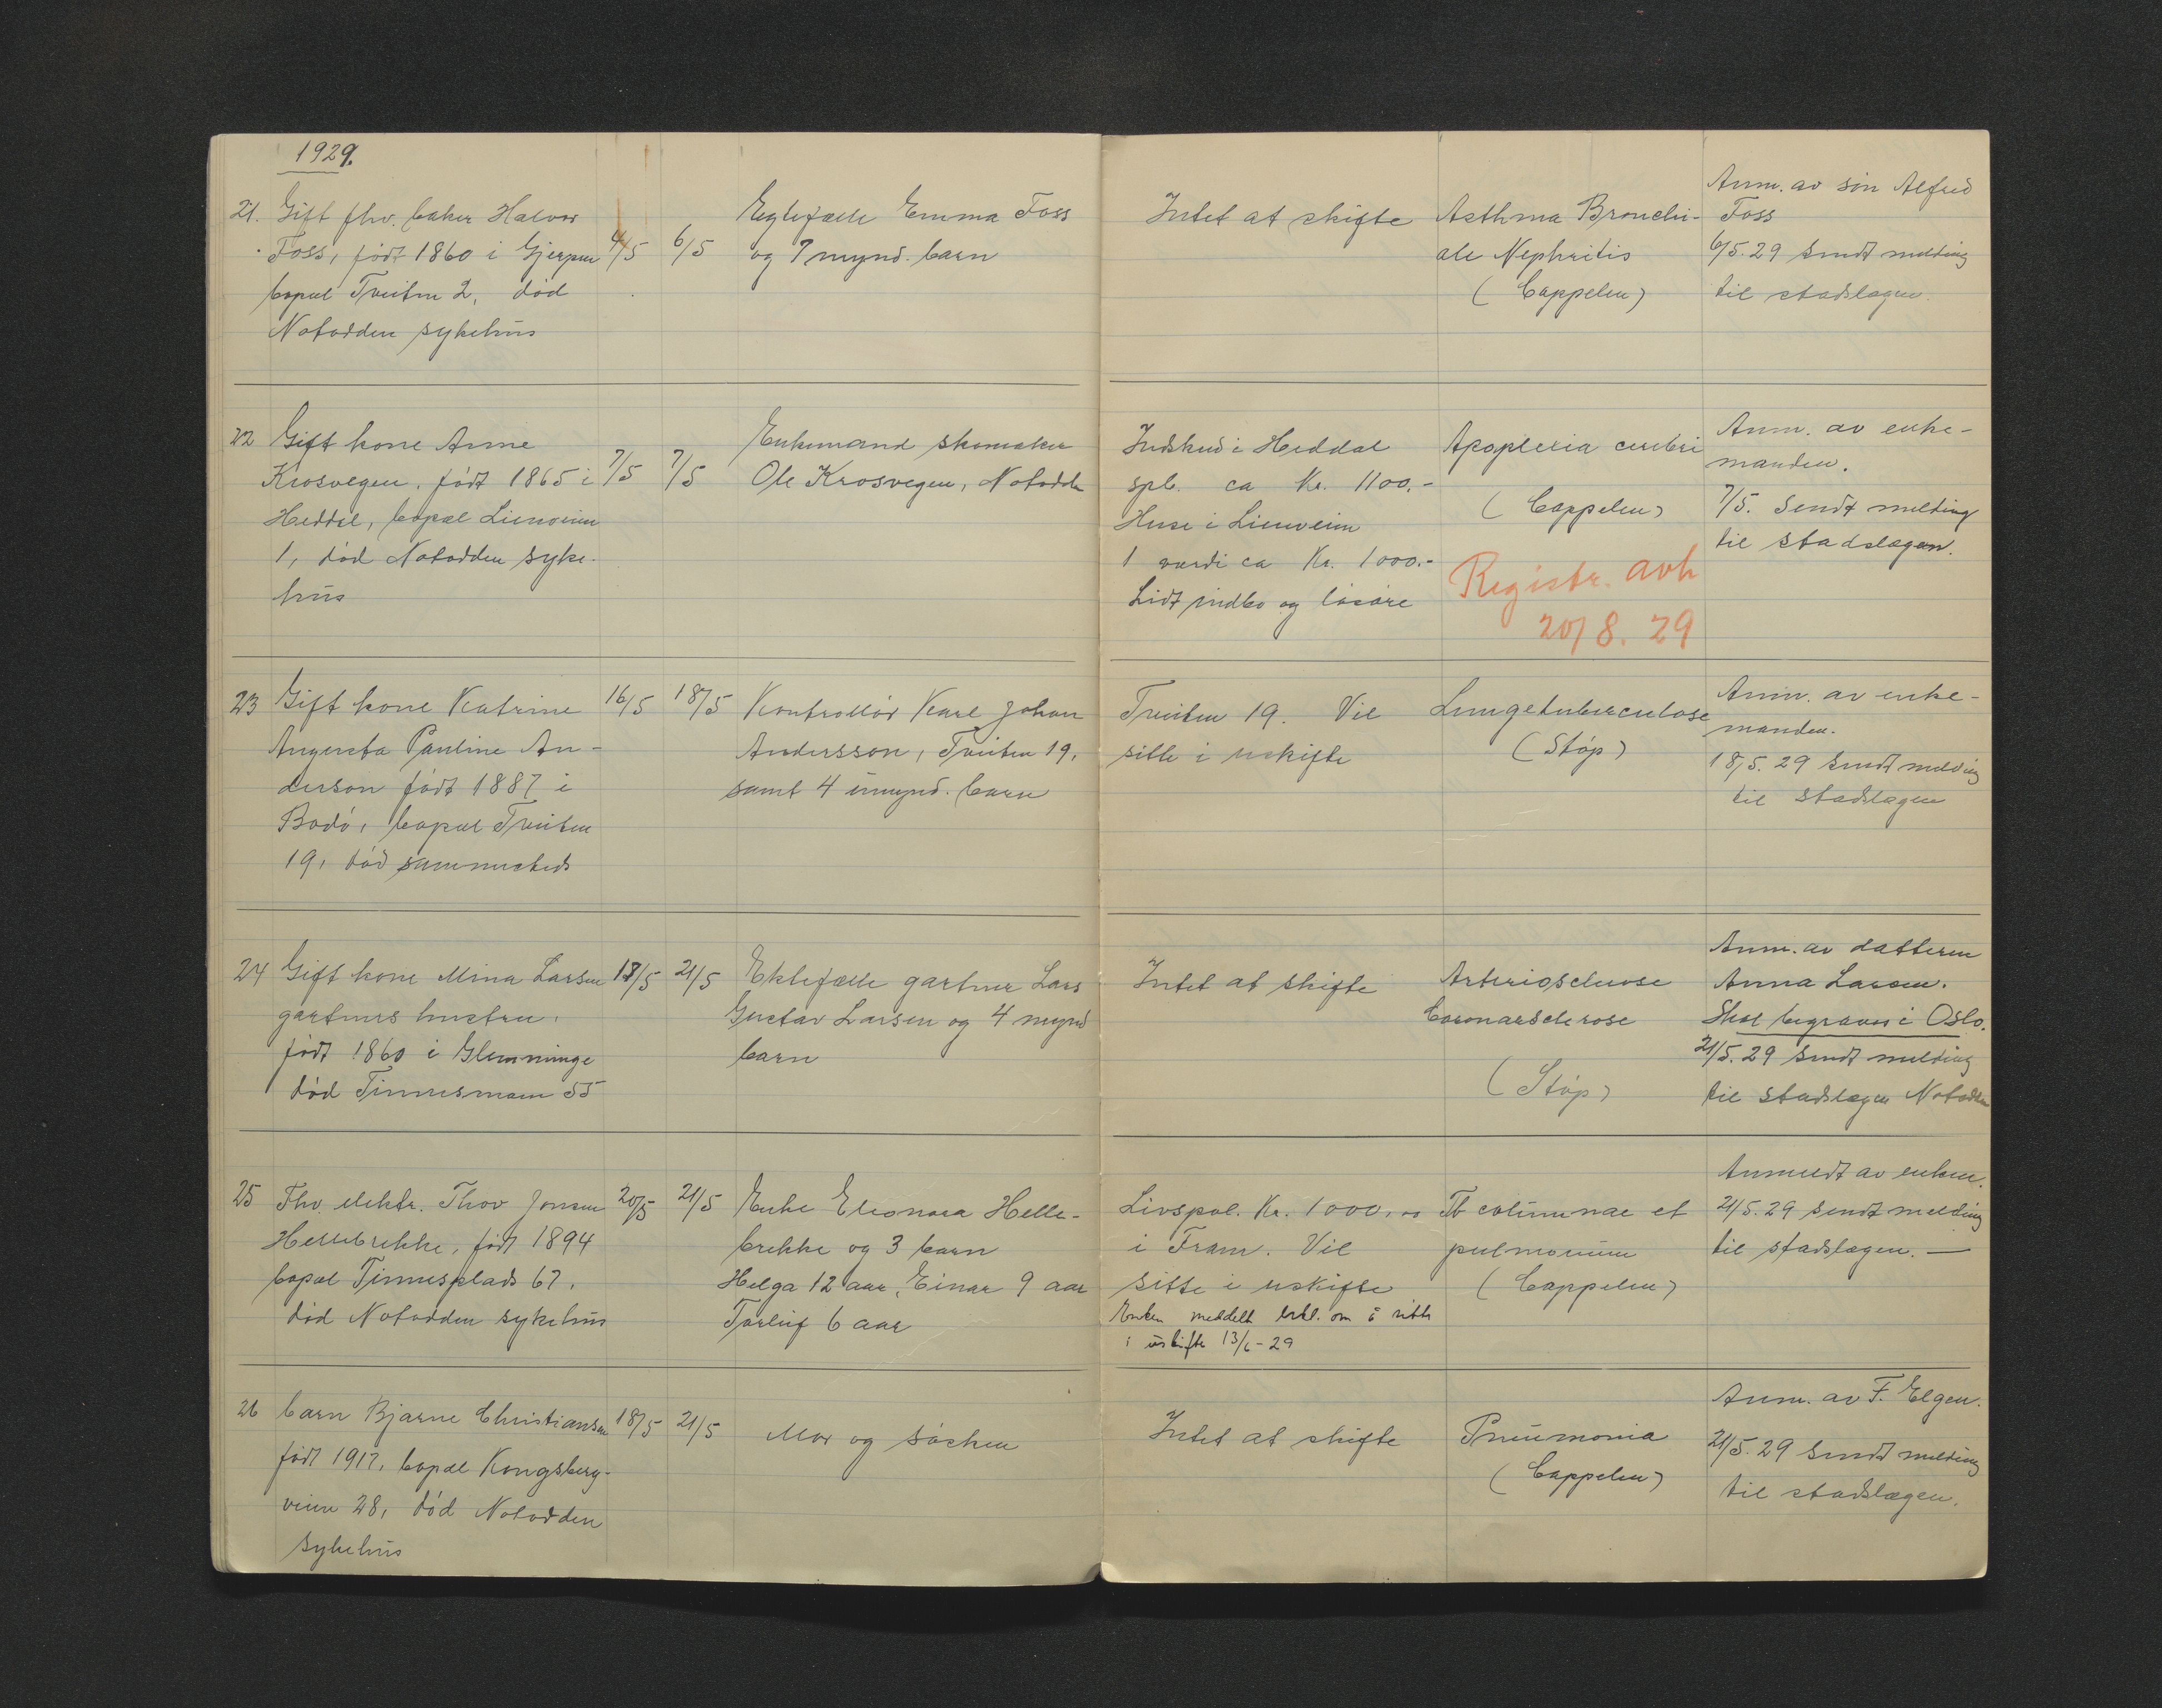 1929.
21. Gift fhv. baker Halvor
Foss, født 1860 i Gjerpen
bopæl Tveiten 2, død
Notodden sykehus
4/5
6/5
Egtefælle Emma Foss
og 7 mynd. barn
Intet at skifte
Asthma Bronchi-
ale Nephritis
(Cappelen)
Anm. av søn Alfred
Foss
6/5.29 sendt melding
til stadslægen.
22 Gift kone Anne
Krosvegen, født 1865 i
Heddal, bopæl Lienveien
1, død Notodden syke-
hus
7/5
7/5
Enkemand skomaker
Ole Krosvegen, Notodden
Indskud i Heddal
spb. ca Kr. 1100.-
Huse i Lienveien
1 værdi ca Kr. 1000.-
Lidt indbo og løsøre
Apoplexia cerebri
(Cappelen)
Registr. avh
20/8. 29
Anm. av enke-
manden.
7/5. Sendt melding
til stadslægen.
23 Gift kone Katrine
Augusta Pauline An-
derson født 1887 i
Bodø, bopæl Tveiten
19, død sammesteds
16/5
18/5
Kontrollør Karl Johan
Andersson, Tveiten 19,
samt 4 umynd. barn
Tveiten 19. Vil
sitte i uskifte
Lungetuberculose
(Støp)
Anm. av enke-
manden.
18/5.29 sendt melding
til stadslægen
24 Gift kone Mina Larsen
gartners hustru,
født 1860 i Glemminge
død Tinnesmoen 55
18/5
21/5
Ektefælle gartner Lars
Gustav Larsen og 4 mynd
barn
Intet at skifte
Arteriosclerose
Coronarsclerose
(Støp)
Anm. av datteren
Anna Larsen.
Skal begraves i Oslo.
21/5.29 sendt melding
til stadslægen Notodden
25 Fhv. elektr. Thov Jonsen
Hellebrekke, født 1894
bopæl Tinnesplads 67,
død Notodden sykehus
20/5
21/5
Enke Eleonora Helle-
brekke og 3 barn
Helga 12 aar, Einar 9 aar
Torleif 6 aar
Livspol. Kr. 1000.00
i Fram. Vil
sitte i uskifte
Enken meddelt erkl. om å sitte
i uskifte 13/6-29
Tb columnae et
pulmonum
(Cappelen)
Anmeldt av enken.
21/5.29 sendt melding
til stadslægen. —
26 barn Bjarne Christiansen
født 1917, bopæl Kongsberg-
veien 28, død Notodden
sykehus
18/5
21/5
Mor og søsken
Intet at skifte
Pneumonia
(Cappelen)
Anm. av F. Elgen.
21/5.29 sendt melding
til stadslægen.